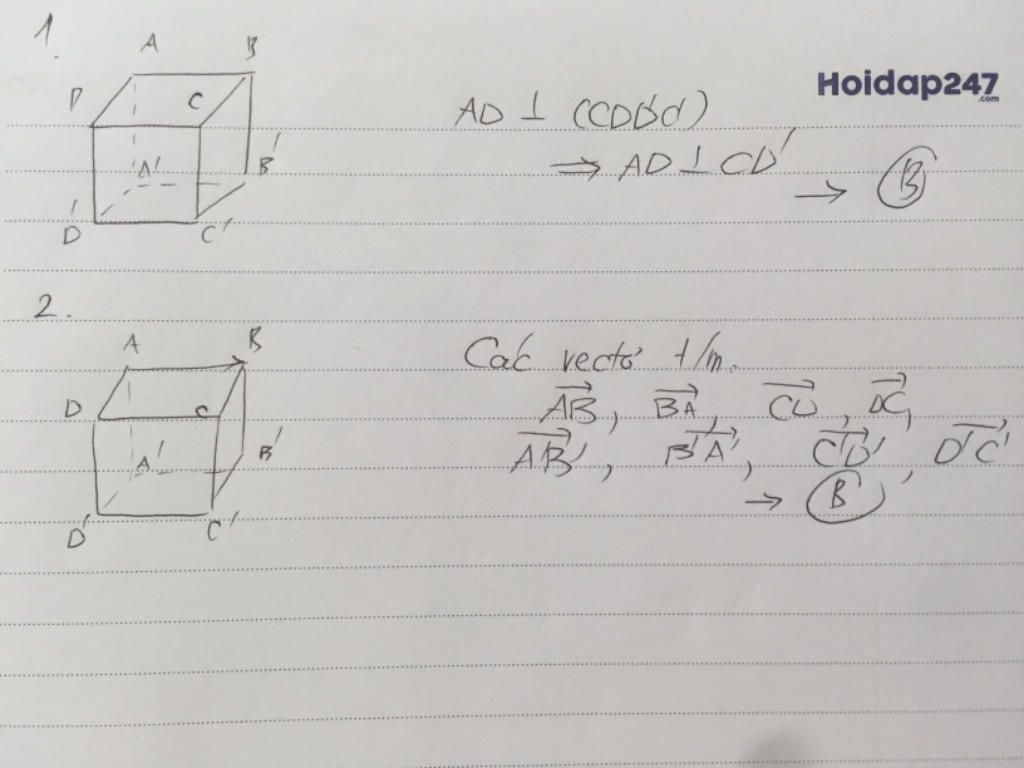 1.
A B
D C
A' B'
D' C'
Hoidap247
.com
AD ⊥ (CDD'C')
⇒ AD ⊥ CD'
→ B
2.
A B
D C
A' B'
D' C'
Các vectơ t/m.
AB, BA, CD, DC,
AB', B'A', C'D', D'C'
→ B